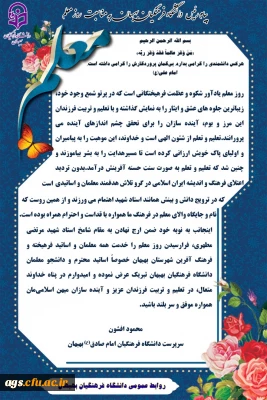 پیام تبریک دانشگاه فرهنگیان بهبهان به مناسبت روز معلم
معلم
بسم الله الرحمن الرحیم
من وقر عالما فقد وقر ربه،
هرکس دانشمندی را گرامی بدارد بی‌گمان پروردگارش را گرامی داشته است.
امام علی(ع)
روز معلم یادآور شکوه و عظمت فرهیختگانی است که در پرتو شمع وجود خود،
زیباترین جلوه های عشق و ایثار را به نمایش گذاشته و با تعلیم و تربیت فرزندان
این مرز و بوم، آینده سازان را برای تحقق چشم اندازهای آینده می
پرورانند،تعلیم و تعلم از شئون الهی است و خداوند، این موهبت را به پیامبران
و اولیای پاک خویش ارزانی کرده است تا مسیرهدایت را به بشر بیاموزند و
چنین شد که تعلیم و تعلم به صورت سنت حسنه آفرینش درآمد.بدون تردید
اعتلای فرهنگ و اندیشه ایران اسلامی در گرو تلاش هدفمند معلمان و اساتیدی است
که در ترویج دانش و بینش همانند استاد شهید اهتمام می ورزند و از همین روست که
نام و جایگاه والای معلم در فرهنگ ما همواره با قداست و احترام همراه بوده است.
اینجانب به نوبه خود ضمن ارج نهادن به مقام شامخ استاد شهید مرتضی
مطهری، فرارسیدن روز معلم را خدمت همه معلمان و اساتید فرهیخته و
فرهنگ آفرین شهرستان بهبهان خصوصاً اساتید محترم و دانشجو معلمان
دانشگاه فرهنگیان بهبهان تبریک عرض نموده و امیدوارم در پناه خداوند
متعال، در تعلیم و تربیت فرزندان عزیز و آینده سازان میهن اسلامی‌مان
همواره موفق و سر بلند باشید.
محمود افشون
سرپرست دانشگاه فرهنگیان امام صادق(ع) بهبهان
روابط عمومی دانشگاه فرهنگیان
ags.cfu.ac.ir